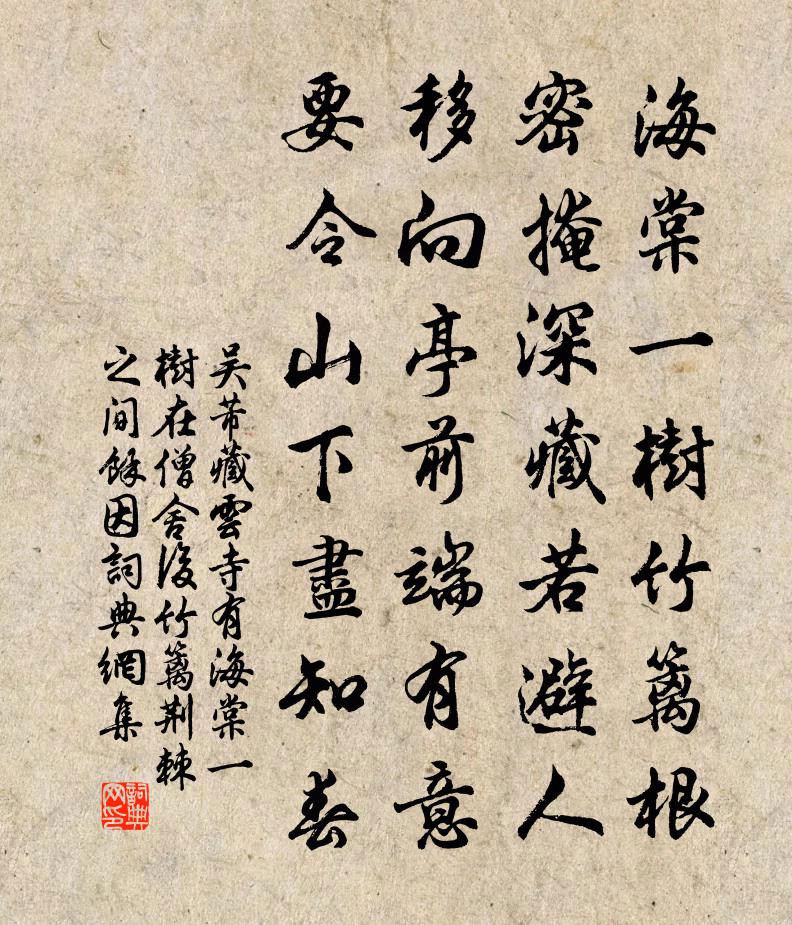 海棠一樹竹籬根
密掩深藏若避人
移向亭前端有意
要令山下盡知春
吳芾藏雲寺有海棠一
樹在僧舍後竹籬荆棘
之间餘因詞典網集
詞典網印